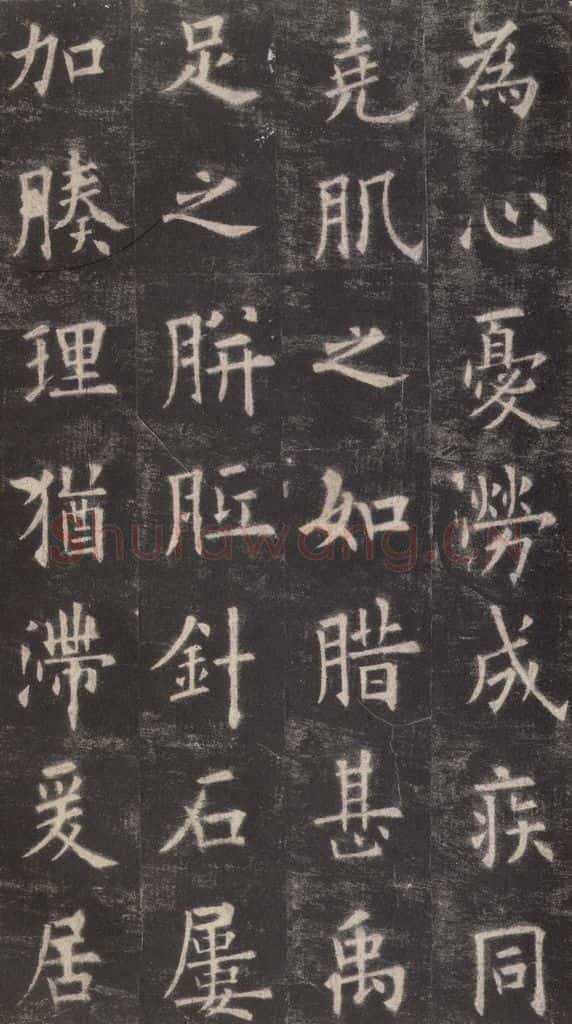 為心憂勞成疾同
堯肌之如腊甚禹
足之胼胝針石屢
加腠理猶滯爰居
Shufawang.cn